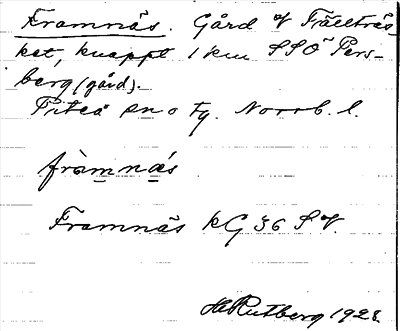 Framnäs. Gård vf Fjällträs-
ket, knappt 1 km SSÖ Pers-
berg (gård).
Piteå sn o tg. Norrb. l.
fràmnás
Framnäs kG 36 S vf.
HRutberg 1928.